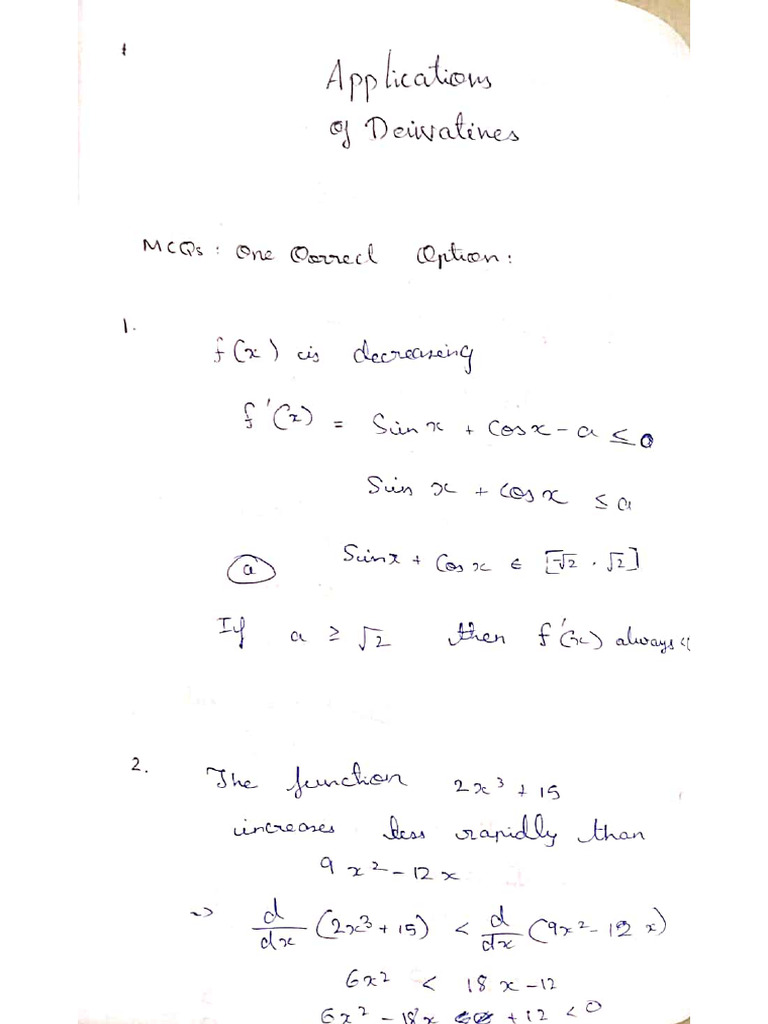 1
Applications
of Derivatives
MCQs: One Correct Option:
1.
f(x) is decreasing
f'(x) = Sin x + Cos x - a ≤ 0
Sin x + Cos x ≤ a
(a) Sin x + Cos x ∈ [-√2, √2]
If a ≥ √2 then f'(x) always
2. The function 2x³ + 15
increases less rapidly than
9x² - 12x
=> d/dx (2x³ + 15) < d/dx (9x² - 12x)
6x² < 18x - 12
6x² - 18x + 12 < 0